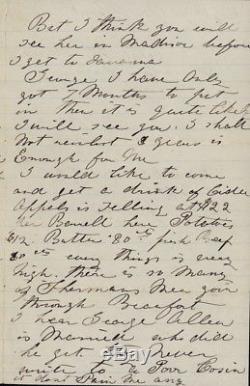 But I think you will
see her in Madison before
I get to
George, I have only
got 7 Months to put
in then it is quite likely
I will see you. I shall
Not reenlist 3 years is
Enough for Me
I would like to come
and get a drink of Cider
Appels is selling at $22
Per Barrell here Potatoes
$12. Butter 80 cts
every things is very
high. there is so many
of Shermans Men goin
through Beaufort
I hear George Allen
is Married who did
he get I never
write to Your Cosin